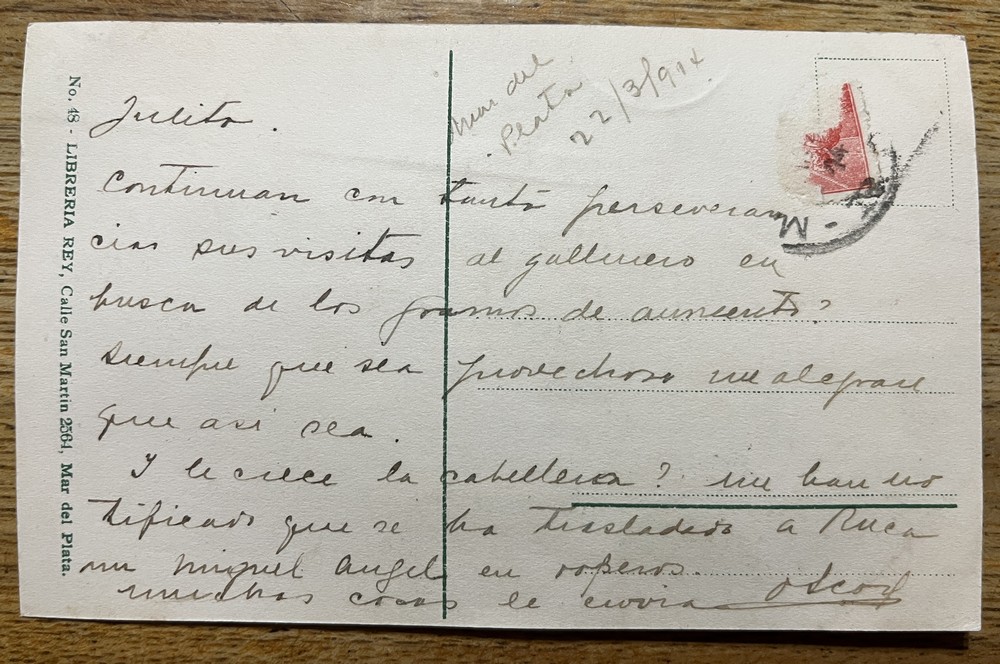 No. 48 - LIBRERIA REY, Calle San Martin 2564, Mar del Plata.
Mar del
Plata
22/3/914
Julito.
Continuan con tanta perseveran
cia sus visitas al gallinero en
busca de los gramos de aumento?
Siempre que sea provechoso me alegrare
que asi sea.
Y le crece la cabellera? me han no
tificado que se ha trasladado a Ruca
un Miguel Angel en roperos.
muchas cosas le envia Oscar
M -